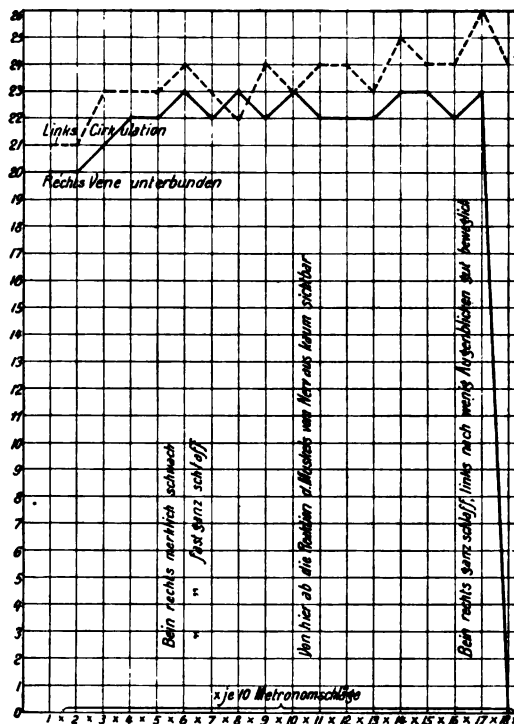 26
25
24
23
22
21
20
19
18
17
16
15
14
13
12
11
10
9
8
7
6
5
4
3
2
1
0
Links Cirkulation
Rechts Vene unterbunden
Bein rechts merklich schwach
" " fast ganz schlaff
Von hier ab die Reaktion d. Muskels vom Nerv aus kaum sichtbar
Bein rechts ganz schlaff, links nach wenig Augenblicken gut beweglich
x je 10 Metronomschläge
1 x 2 x 3 x 4 x 5 x 6 x 7 x 8 x 9 x 10 x 11 x 12 x 13 x 14 x 15 x 16 x 17 x 18